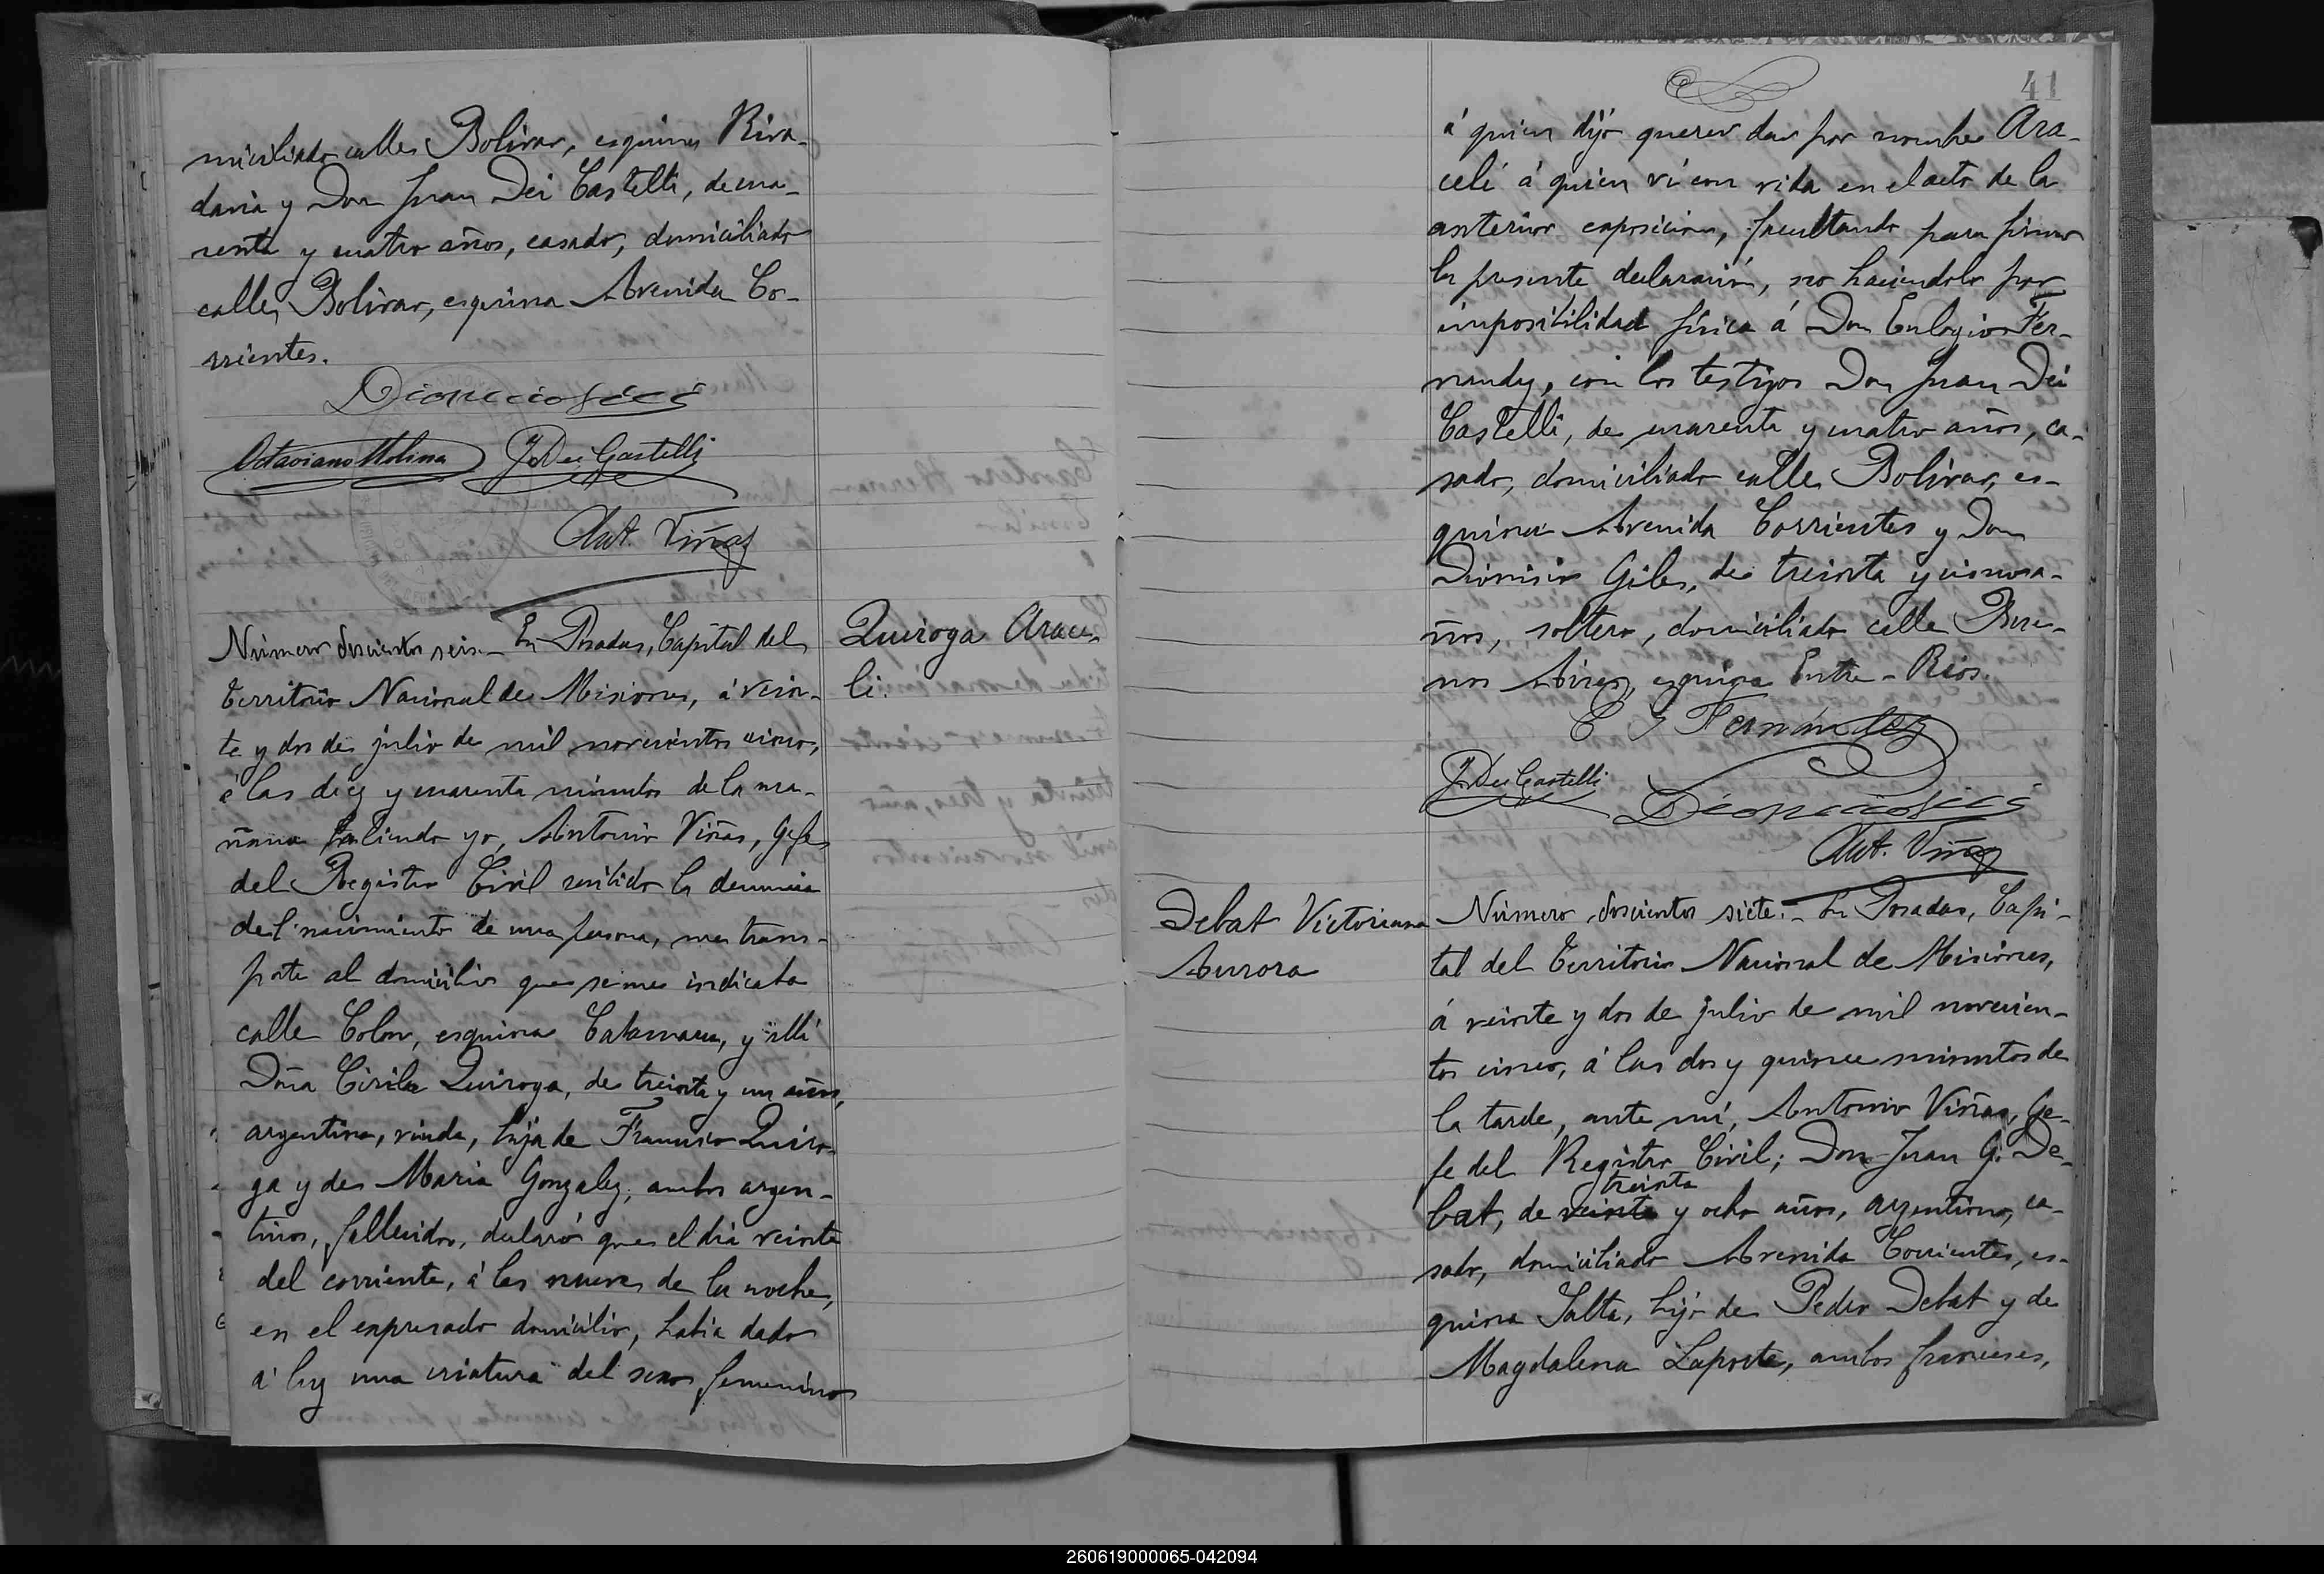 miciliado calles Bolivar, esquina Riva-
davia y Don Juan Dei Castelli, de cua-
renta y cuatro años, casado, domiciliado
calle Bolivar, esquina Avenida Co-
rrientes.
Octaviano Molina J. Dei Castelli
Ant. Viñas
Número doscientos seis.- En Posadas, Capital del
Territorio Nacional de Misiones, á vein-
te y dos de julio de mil novecientos cinco,
á las diez y cuarenta minutos de la ma-
ñana habiendo yo, Antonio Viñas, Gefe
del Registro Civil recibido la denuncia
del nacimiento de una persona, me trans-
porté al domicilio que se me indicaba
calle Colon, esquina Catamarca, y allí
Doña Cirila Quiroga, de treinta y un años,
argentina, viuda, hija de Francisco Quiro-
ga y de Maria Gonzalez, ambos argen-
tinos, fallecidos, declaró que el dia veinte
del corriente, á las nueve de la noche,
en el expresado domicilio, habia dado
á luz una criatura del sexo femenino
Quiroga Arace-
li.
41
á quien dijo querer dar por nombre Ara-
celi á quien ví con vida en el acto de la
anterior exposicion, facultando para firmar
la presente declaración, no haciendolo por
imposibilidad física á Don Eulogio Fer-
nandez, con los testigos Don Juan Dei
Castelli, de cuarenta y cuatro años, ca-
sado, domiciliado calle Bolivar, es-
quina Avenida Corrientes y Don
Dionisio Giles, de treinta y cinco a-
ños, soltero, domiciliado calle Bue-
nos Aires, esquina Entre-Rios.
E G Fernández
J. Dei Castelli
Ant. Viñas
Debat Victoriana
Aurora
Número doscientos siete.- En Posadas, Capi-
tal del Territorio Nacional de Misiones,
á veinte y dos de julio de mil novecien-
tos cinco, á las dos y quince minutos de
la tarde, ante mí, Antonio Viñas, Ge-
fe del Registro Civil; Don Juan G. De-
treinta
bat, de veinte y ocho años, argentino, ca-
sado, domiciliado Avenida Corrientes, es-
quina Salta, hijo de Pedro Debat y de
Magdalena Laporte, ambos franceses,
260619000065-042094